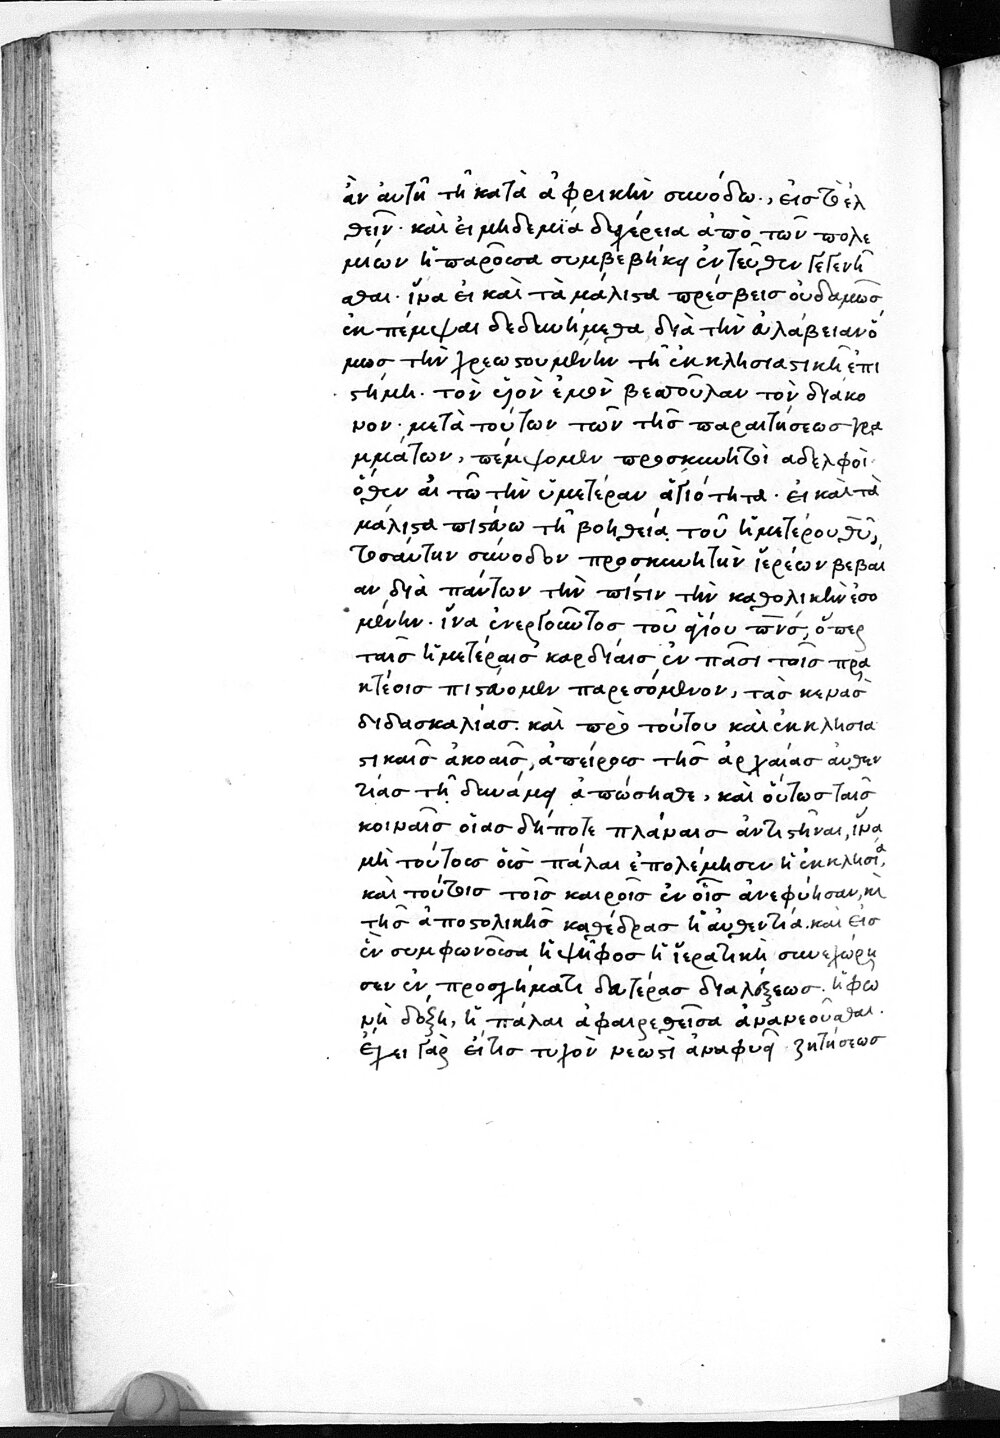 ὰν ἀυτῆ τῆ κατὰ ἀφρικὴν συνόδω, ἐισ τὸ ἐλ
θεῖν· καὶ ἐι μηδεμϊα διχέρεια ἀπὸ τῶν πολε
μιων ἢ παροῦσα συμβέβηκε ἐντεῦθεν γεγενῆ
σθαι· ἵνα ἐι καὶ τὰ μάλιστα πρέσβεισ ὀυδαμῶσ
ἐκπέμψαι δεδυνήμεθα διὰ τὴν ἐυλάβειαν ὅ
μωσ τὴν χρεωστουμένην τῆ ἐκκλησιαστικῆ ἐπι
στήμη· τὸν υἱὸν ἐμὸν βετοῦλαν τὸν διάκο
νον· μετὰ τούτων τῶν τῆσ παραιτήσεωσ γρα
μμάτων, πέμψομεν προσκυνητοὶ αδελφοὶ·
ὅθεν ἀιτῶ τὴν ὑμετέραν ἁγιότητα· ἐι καὶ τὰ
μάλιστα πιστεύω τῆ βοηθεία τοῦ ἡμετέρου θῦ,
τοσαύτην σύνοδον προσκυνητὴν ἱερέων βεβαί
αν διὰ πάντων τὴν πίστιν τὴν καθολικὴν ἐσο
μένην· ἵνα ἐνεργοῦντοσ τοῦ ἁγίου πνσ, ὅπερ
ταῖσ ἡμετέραισ καρδίαισ ἐν πᾶσι τοῖσ πρα
κτέοισ πιστεύομεν παρεσόμενον, τὰσ κενὰσ
διδασκαλίασ· καὶ πρὸ τούτου καὶ ἐκκλησια
στικαῖσ ἀκοαῖσ, ἀπείρουσ τῆσ ἀρχαίασ ἀυθεν
τίασ τῆ δυνάμει ἀπώσησθε, καὶ ὅυτωσ ταῖσ
κοιναῖσ οἵασ δήποτε πλάναισ ἀντιστῆναι, ἵνα
μὴ τούτουσ ὅυσ πάλαι ἐπολέμησεν ἡ ἐκκλησία,
καὶ τούτοισ τοῖσ καιροῖσ ἐν οἷσ ἀνεφύησαν, κὶ
τῆσ ἀποστολικῆσ καθέδρασ ἡ ἀυθεντία· καὶ ἐισ
ἓν συμφωνοῦσα ἡ ψῆφοσ ἡ ἱερατικὴ συνεχώρη
σεν ἐν προσχήματι δευτέρασ διαλέξεωσ· ἡ φω
νὴ δόξη, ἡ πάλαι ἀφαιρεθεῖσα ἀνανεοῦσθαι·
Ἔχει γὰρ εἴτισ τυχὸν νεωστὶ ἀναφυεῖ ζητήσεωσ